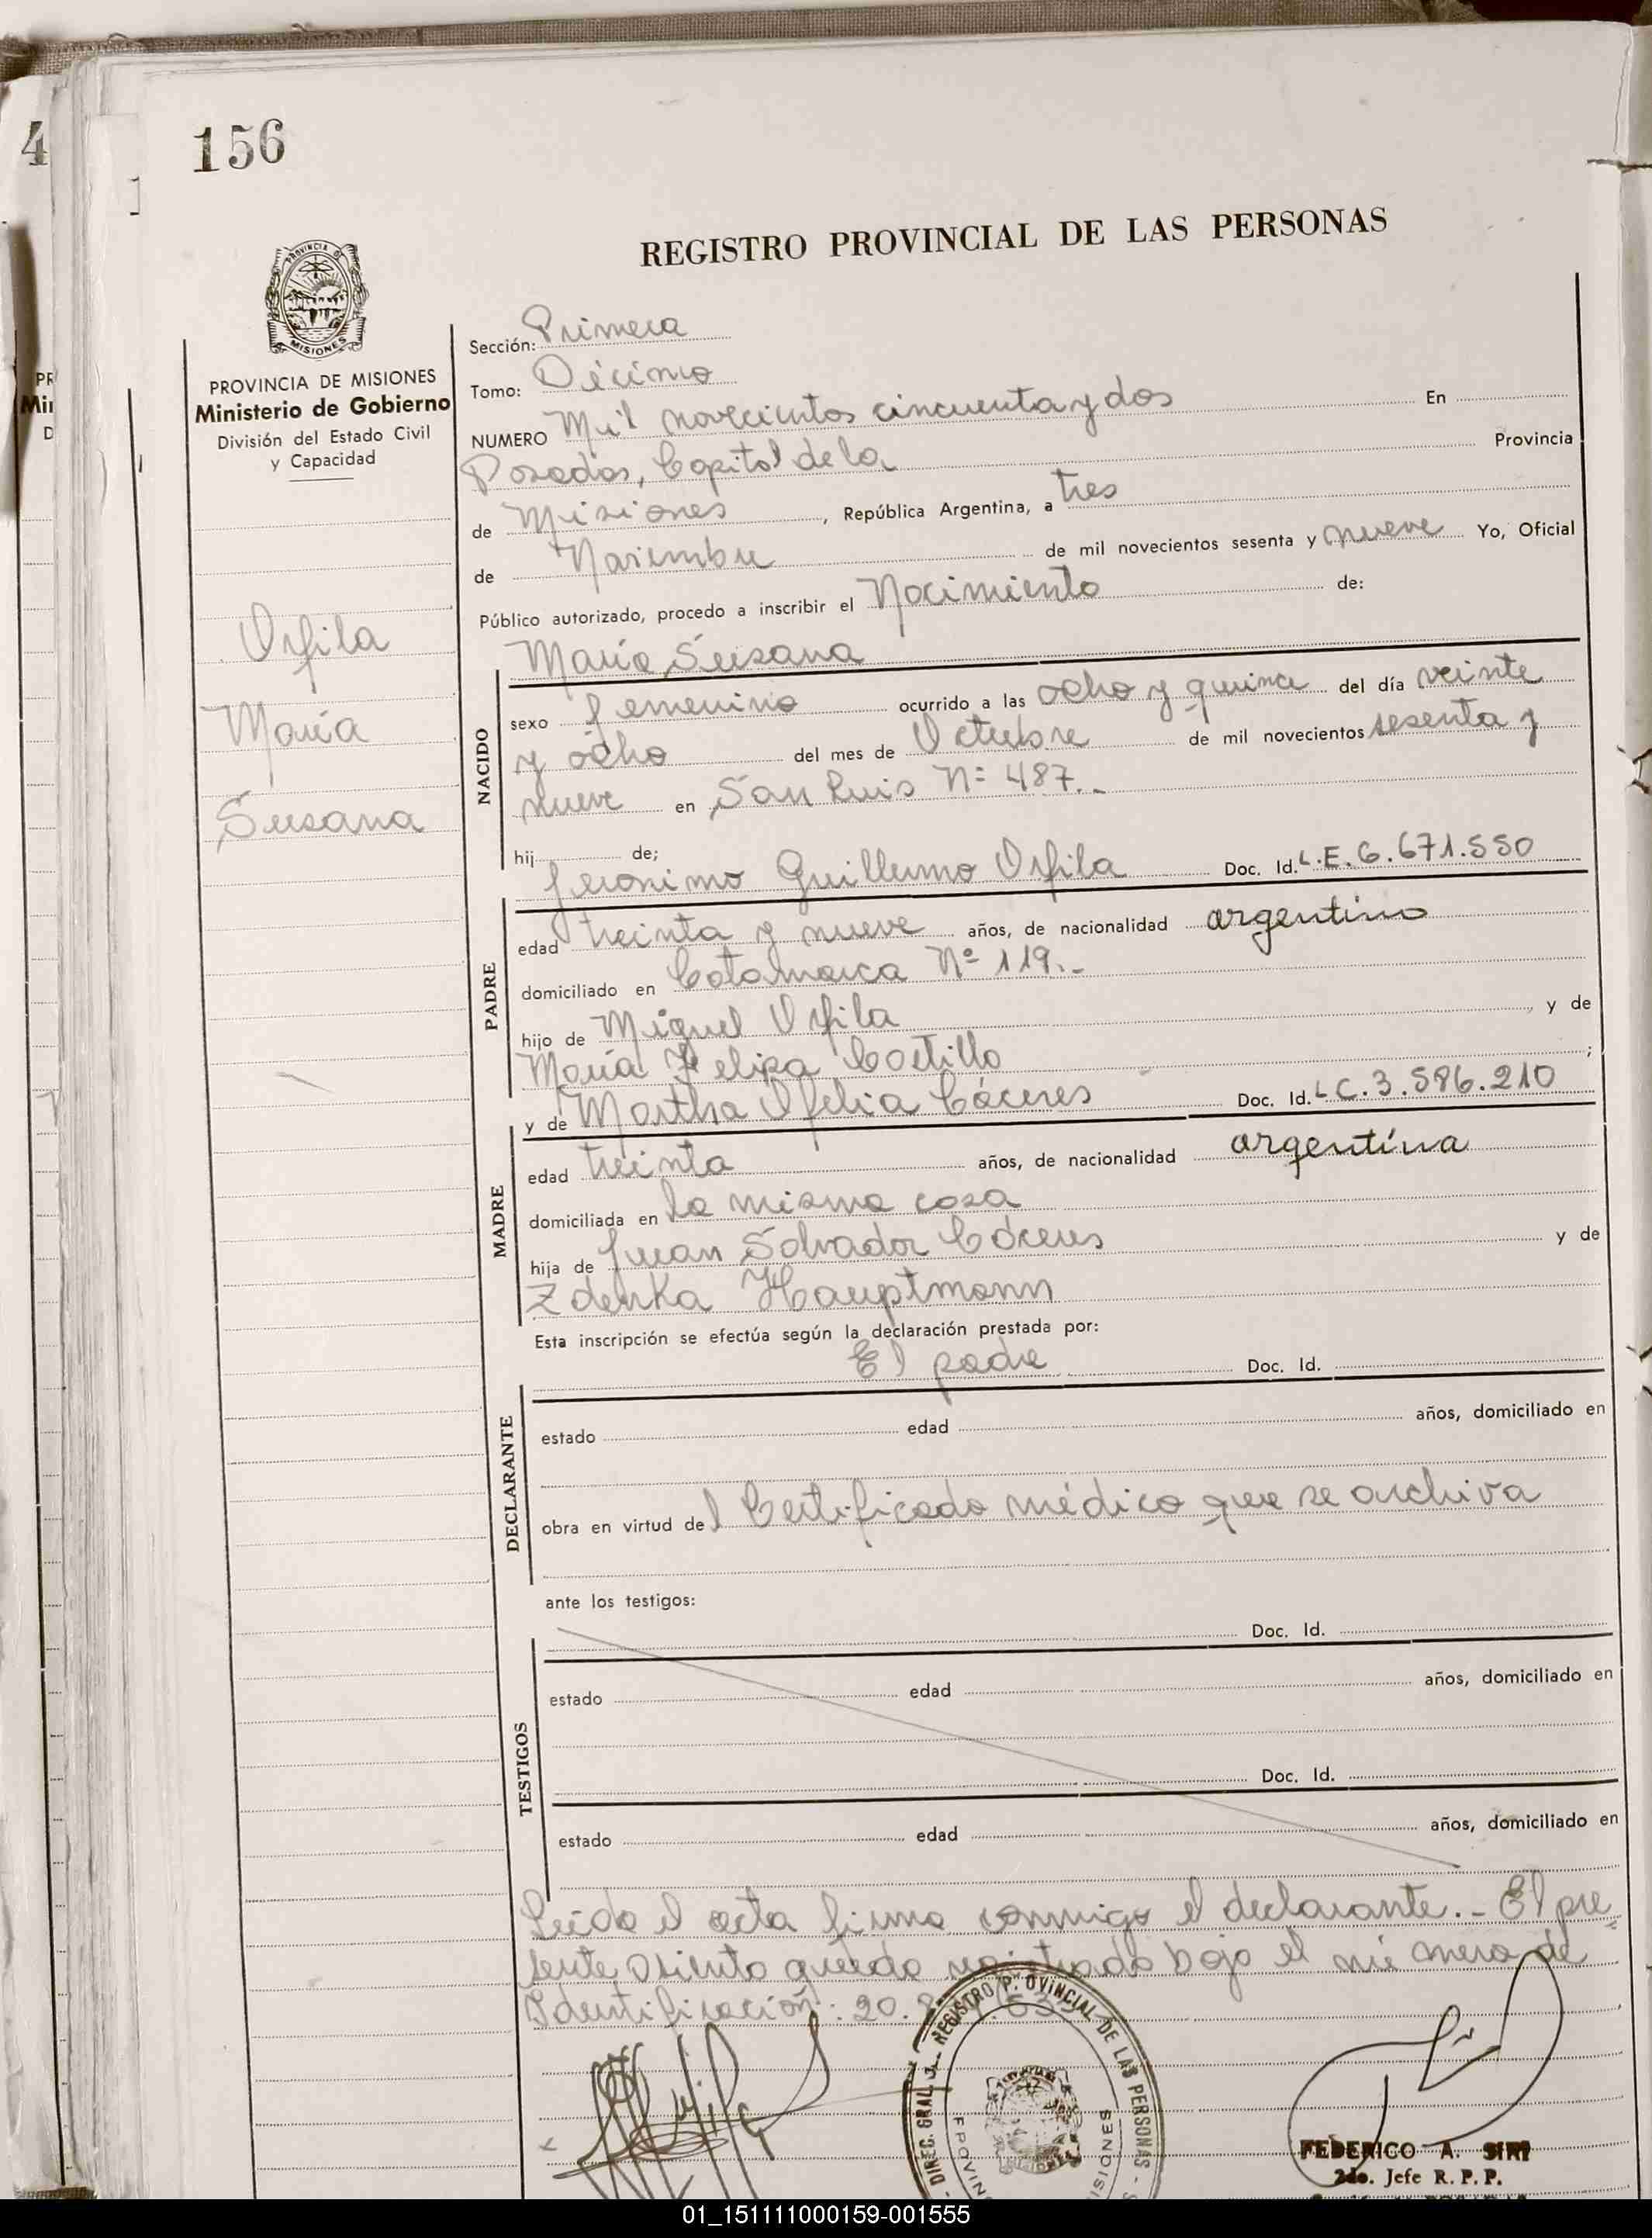 4
156
REGISTRO PROVINCIAL DE LAS PERSONAS
PROVINCIA DE
MISIONES
PROVINCIA DE MISIONES
Ministerio de Gobierno
División del Estado Civil
y Capacidad
Orfila
María
Susana
Sección: Primera
Tomo: Décimo
NUMERO Mil novecientos cincuenta y dos En
Posadas, Capital de la Provincia
de Misiones, República Argentina, a tres
de Noviembre de mil novecientos sesenta y nueve Yo, Oficial
Público autorizado, procedo a inscribir el Nacimiento de:
María Susana
NACIDO
sexo femenino ocurrido a las ocho y quince del día veinte
y ocho del mes de Octubre de mil novecientos sesenta y
nueve en San Luis Nº 487.-
hij de;
Jeronimo Guillermo Orfila Doc. Id. L.E.6.671.550
PADRE
edad treinta y nueve años, de nacionalidad argentino
domiciliado en Catamarca Nº 119.-
hijo de Miguel Orfila, y de
María Feliza Costillo;
y de Martha Ofelia Cáceres Doc. Id. L.C.3.586.210
MADRE
edad treinta años, de nacionalidad argentina
domiciliada en la misma casa
hija de Juan Salvador Cáceres y de
Zdenka Hauptmann
Esta inscripción se efectúa según la declaración prestada por:
El padre Doc. Id.
DECLARANTE
estado edad años, domiciliado en
obra en virtud del Certificado médico que se archiva
ante los testigos:
Doc. Id.
TESTIGOS
estado edad años, domiciliado en
Doc. Id.
estado edad años, domiciliado en
Leída el acta firma conmigo el declarante.- El pre
sente asiento queda registrado bajo el número de
Identificación: 20.
DIREC. GRAL. REGISTRO P. OVINCIAL DE LAS PERSONAS
FEDERICO A. SIRI
2do. Jefe R. P. P.
01_151111000159-001555